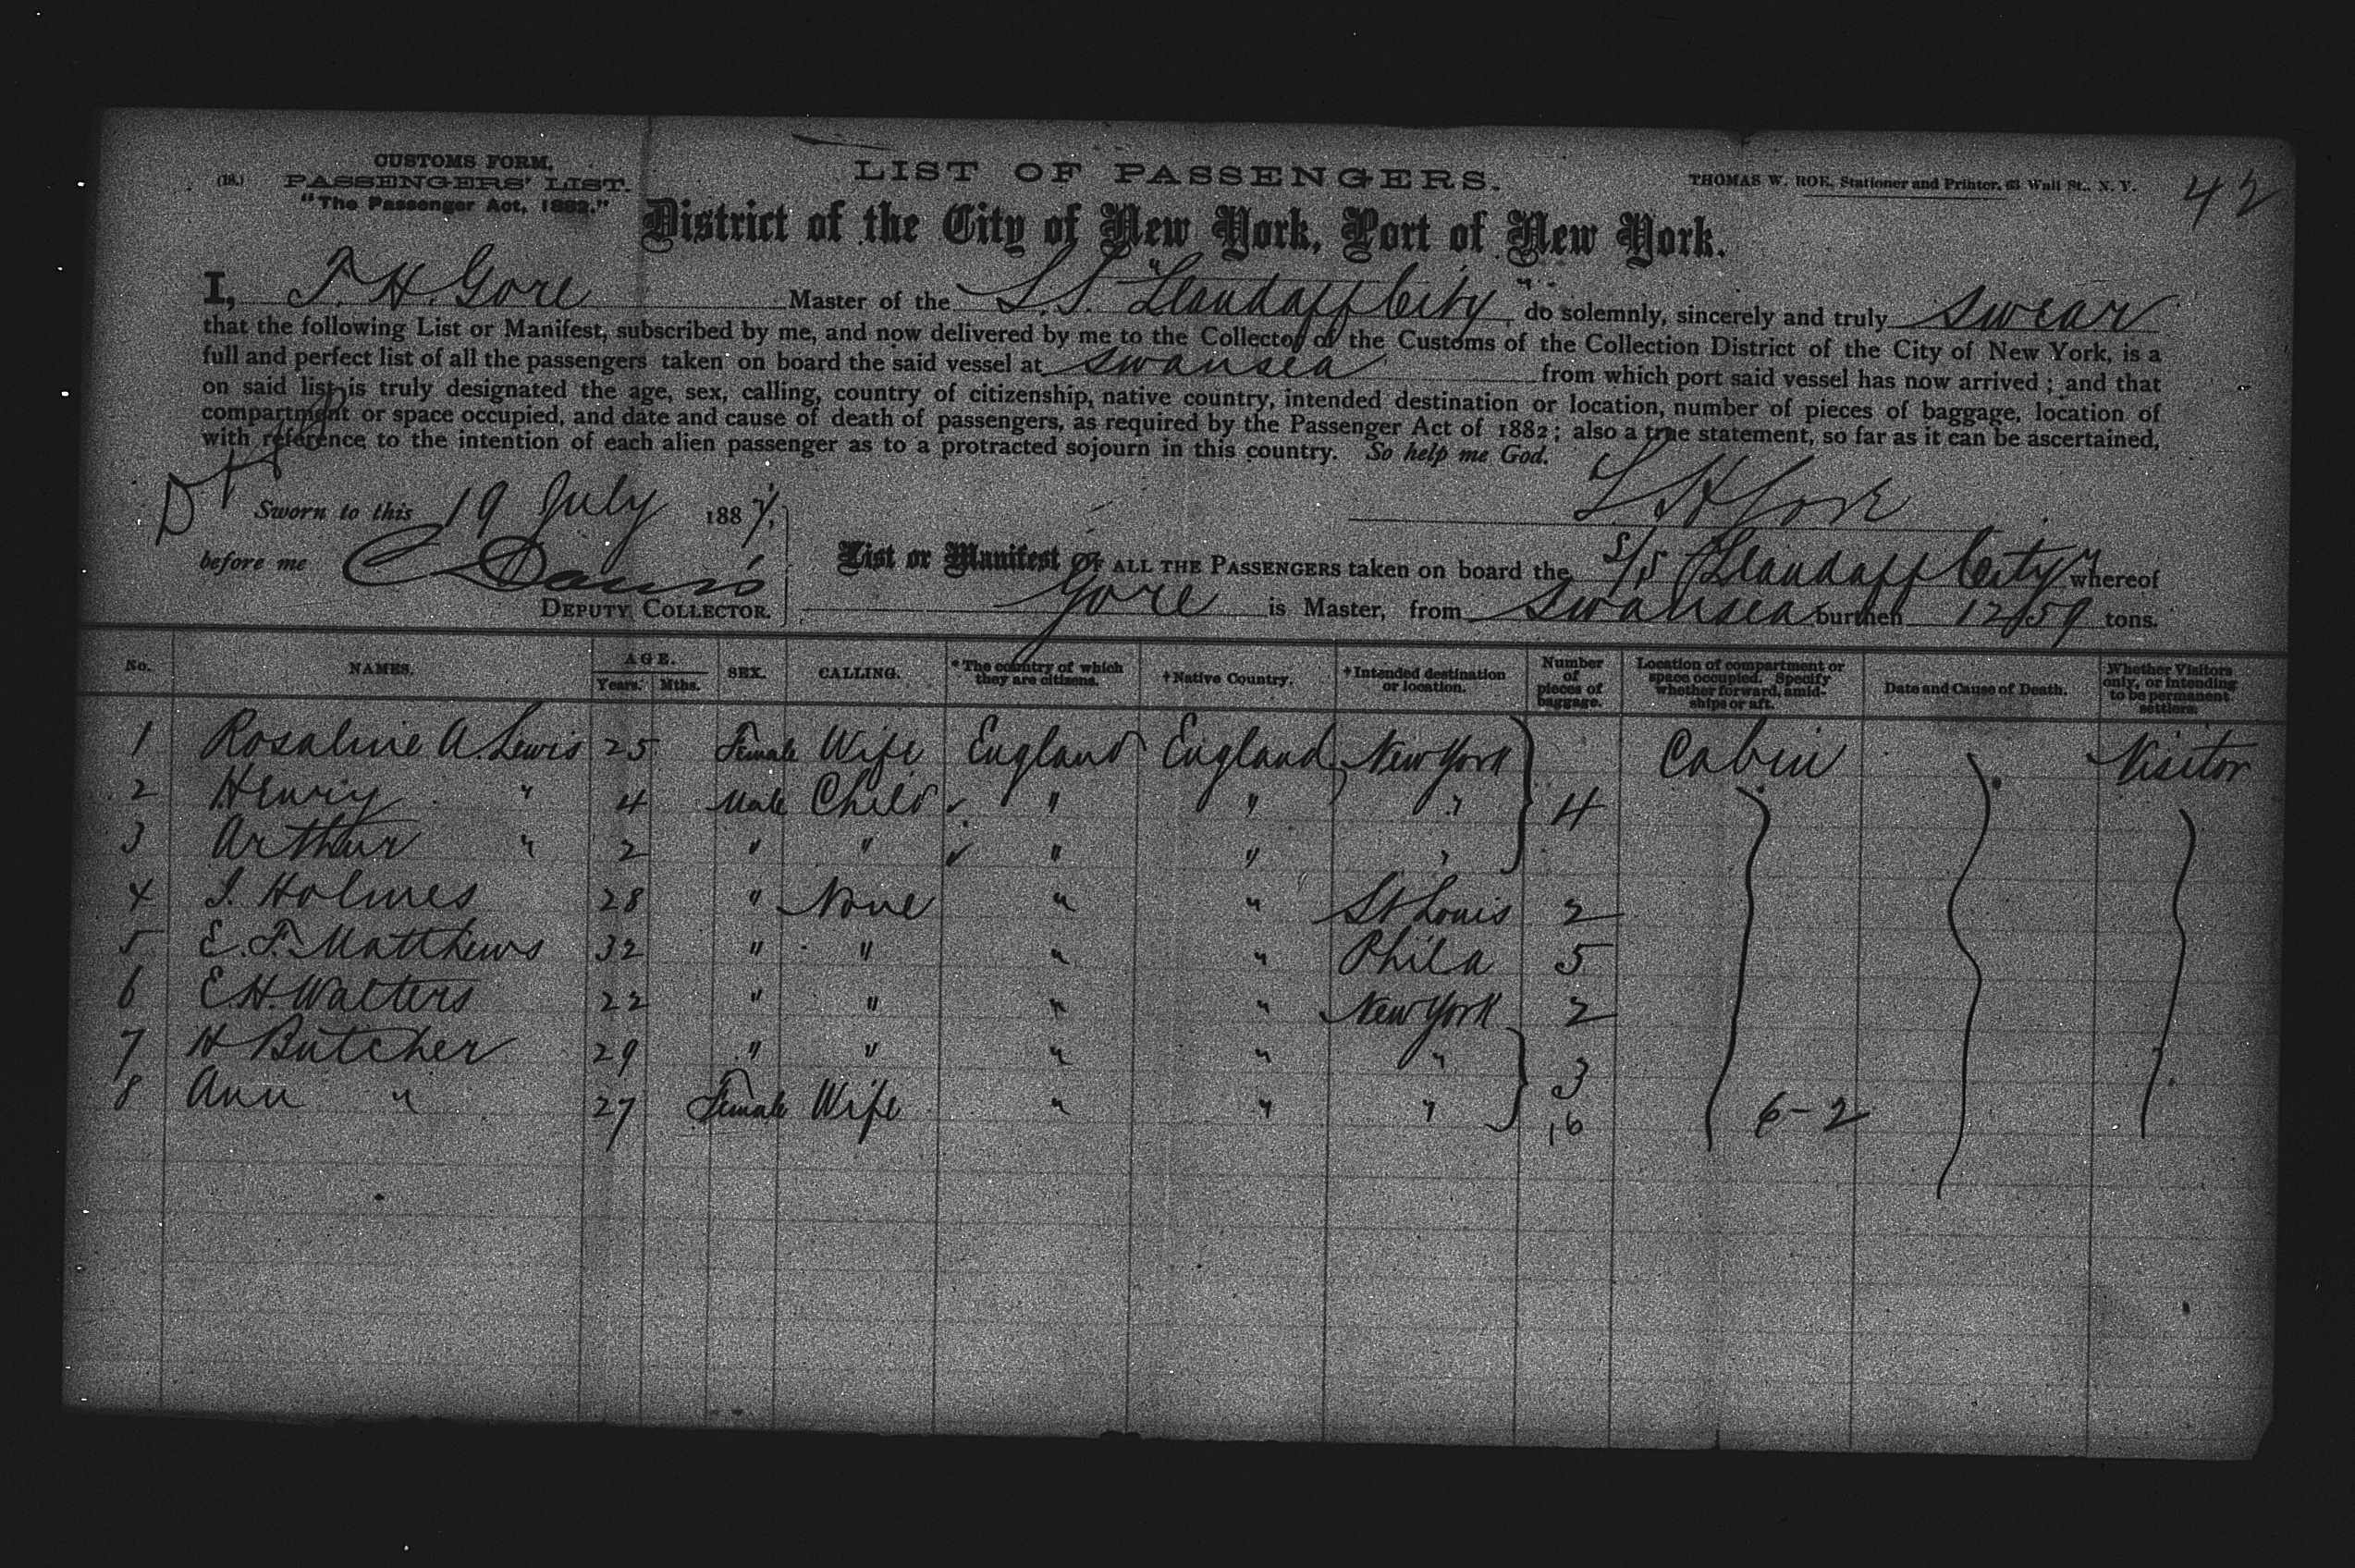 CUSTOMS FORM.
(18.) PASSENGERS' LIST.
"The Passenger Act, 1882."
LIST OF PASSENGERS.
THOMAS W. ROE, Stationer and Printer, 63 Wall St., N. Y.
42
District of the City of New York, Port of New York.
I, T. H. Gore Master of the S.S. "Llandaff City" do solemnly, sincerely and truly swear
that the following List or Manifest, subscribed by me, and now delivered by me to the Collector of the Customs of the Collection District of the City of New York, is a
full and perfect list of all the passengers taken on board the said vessel at Swansea from which port said vessel has now arrived; and that
on said list is truly designated the age, sex, calling, country of citizenship, native country, intended destination or location, number of pieces of baggage, location of
compartment or space occupied, and date and cause of death of passengers, as required by the Passenger Act of 1882; also a true statement, so far as it can be ascertained,
with reference to the intention of each alien passenger as to a protracted sojourn in this country. So help me God.
Sworn to this 19 July 1887,
T H Gore
before me C Davis
DEPUTY COLLECTOR.
List or Manifest OF ALL THE PASSENGERS taken on board the S/S "Llandaff City" whereof
Gore is Master, from Swansea burthen 1259 tons.
No. NAMES. AGE. Years. Mths. SEX. CALLING. *The country of which they are citizens. †Native Country. †Intended destination or location. Number of pieces of baggage. Location of compartment or space occupied. Specify whether forward, amidships or aft. Date and Cause of Death. Whether Visitors only, or intending to be permanent settlers.
1 Rosaline A. Lewis 25 Female Wife England England New York Cabin Visitor
2 Henry " 4 Male Child " " " 4
3 Arthur " 2 " " " " "
4 J. Holmes 28 " None " " St Louis 2
5 E. F. Matthews 32 " " " " Phila 5
6 E. H. Walters 22 " " " " New York 2
7 H Butcher 29 " " " " " 3
8 Ann " 27 Female Wife " " " 6-2
16